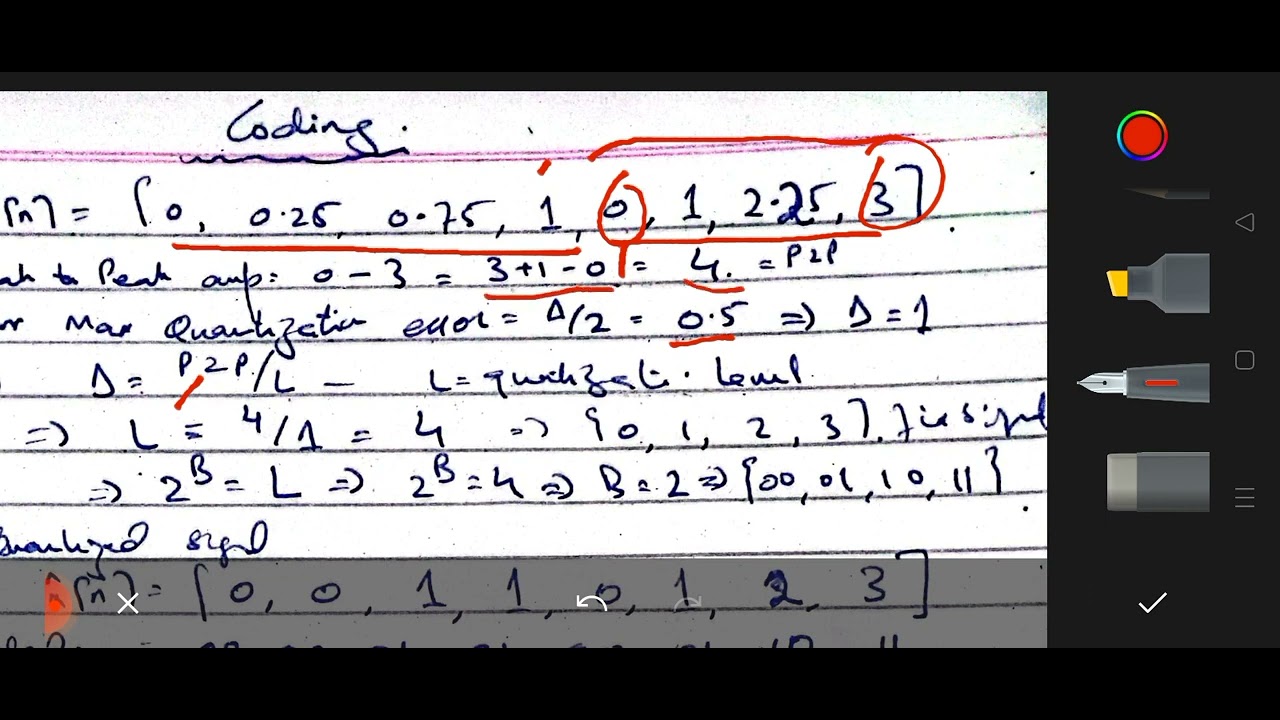 Coding.
[n] = [0, 0.25, 0.75, 1, 0, 1, 2.25, 3]
Peak amp: 0 - 3 = 3+1-0 = 4. = P2P
Max Quantization error = Δ/2 = 0.5 => Δ = 1
Δ = P2P/L - L = Level
=> L = 4/1 = 4 => {0, 1, 2, 3}
=> 2^B = L => 2^B = 4 => B = 2 => {00, 01, 10, 11}
signal
[n] = [0, 0, 1, 1, 0, 1, 2, 3]